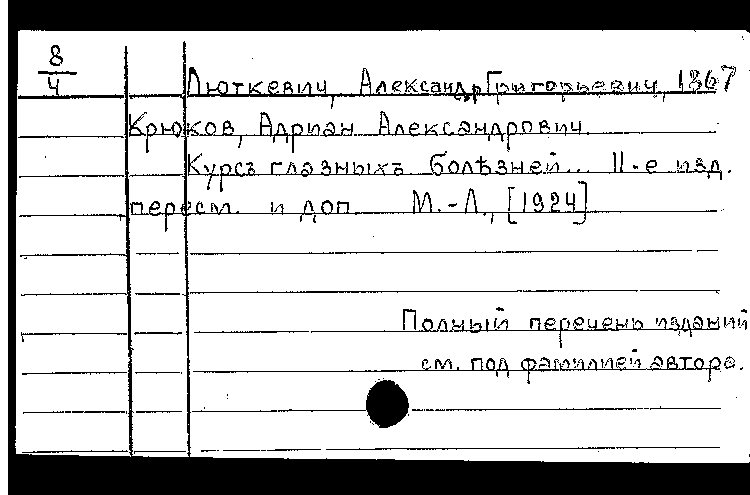 8
4
Люткевич, Александр Григорьевич, 1867
Крюков, Адриан Александрович.
Курсъ глазныхъ болѣзней... 11-е изд.
пересм. и доп. М.-Л., [1924]
Полный перечень изданий
см. под фамилией автора.